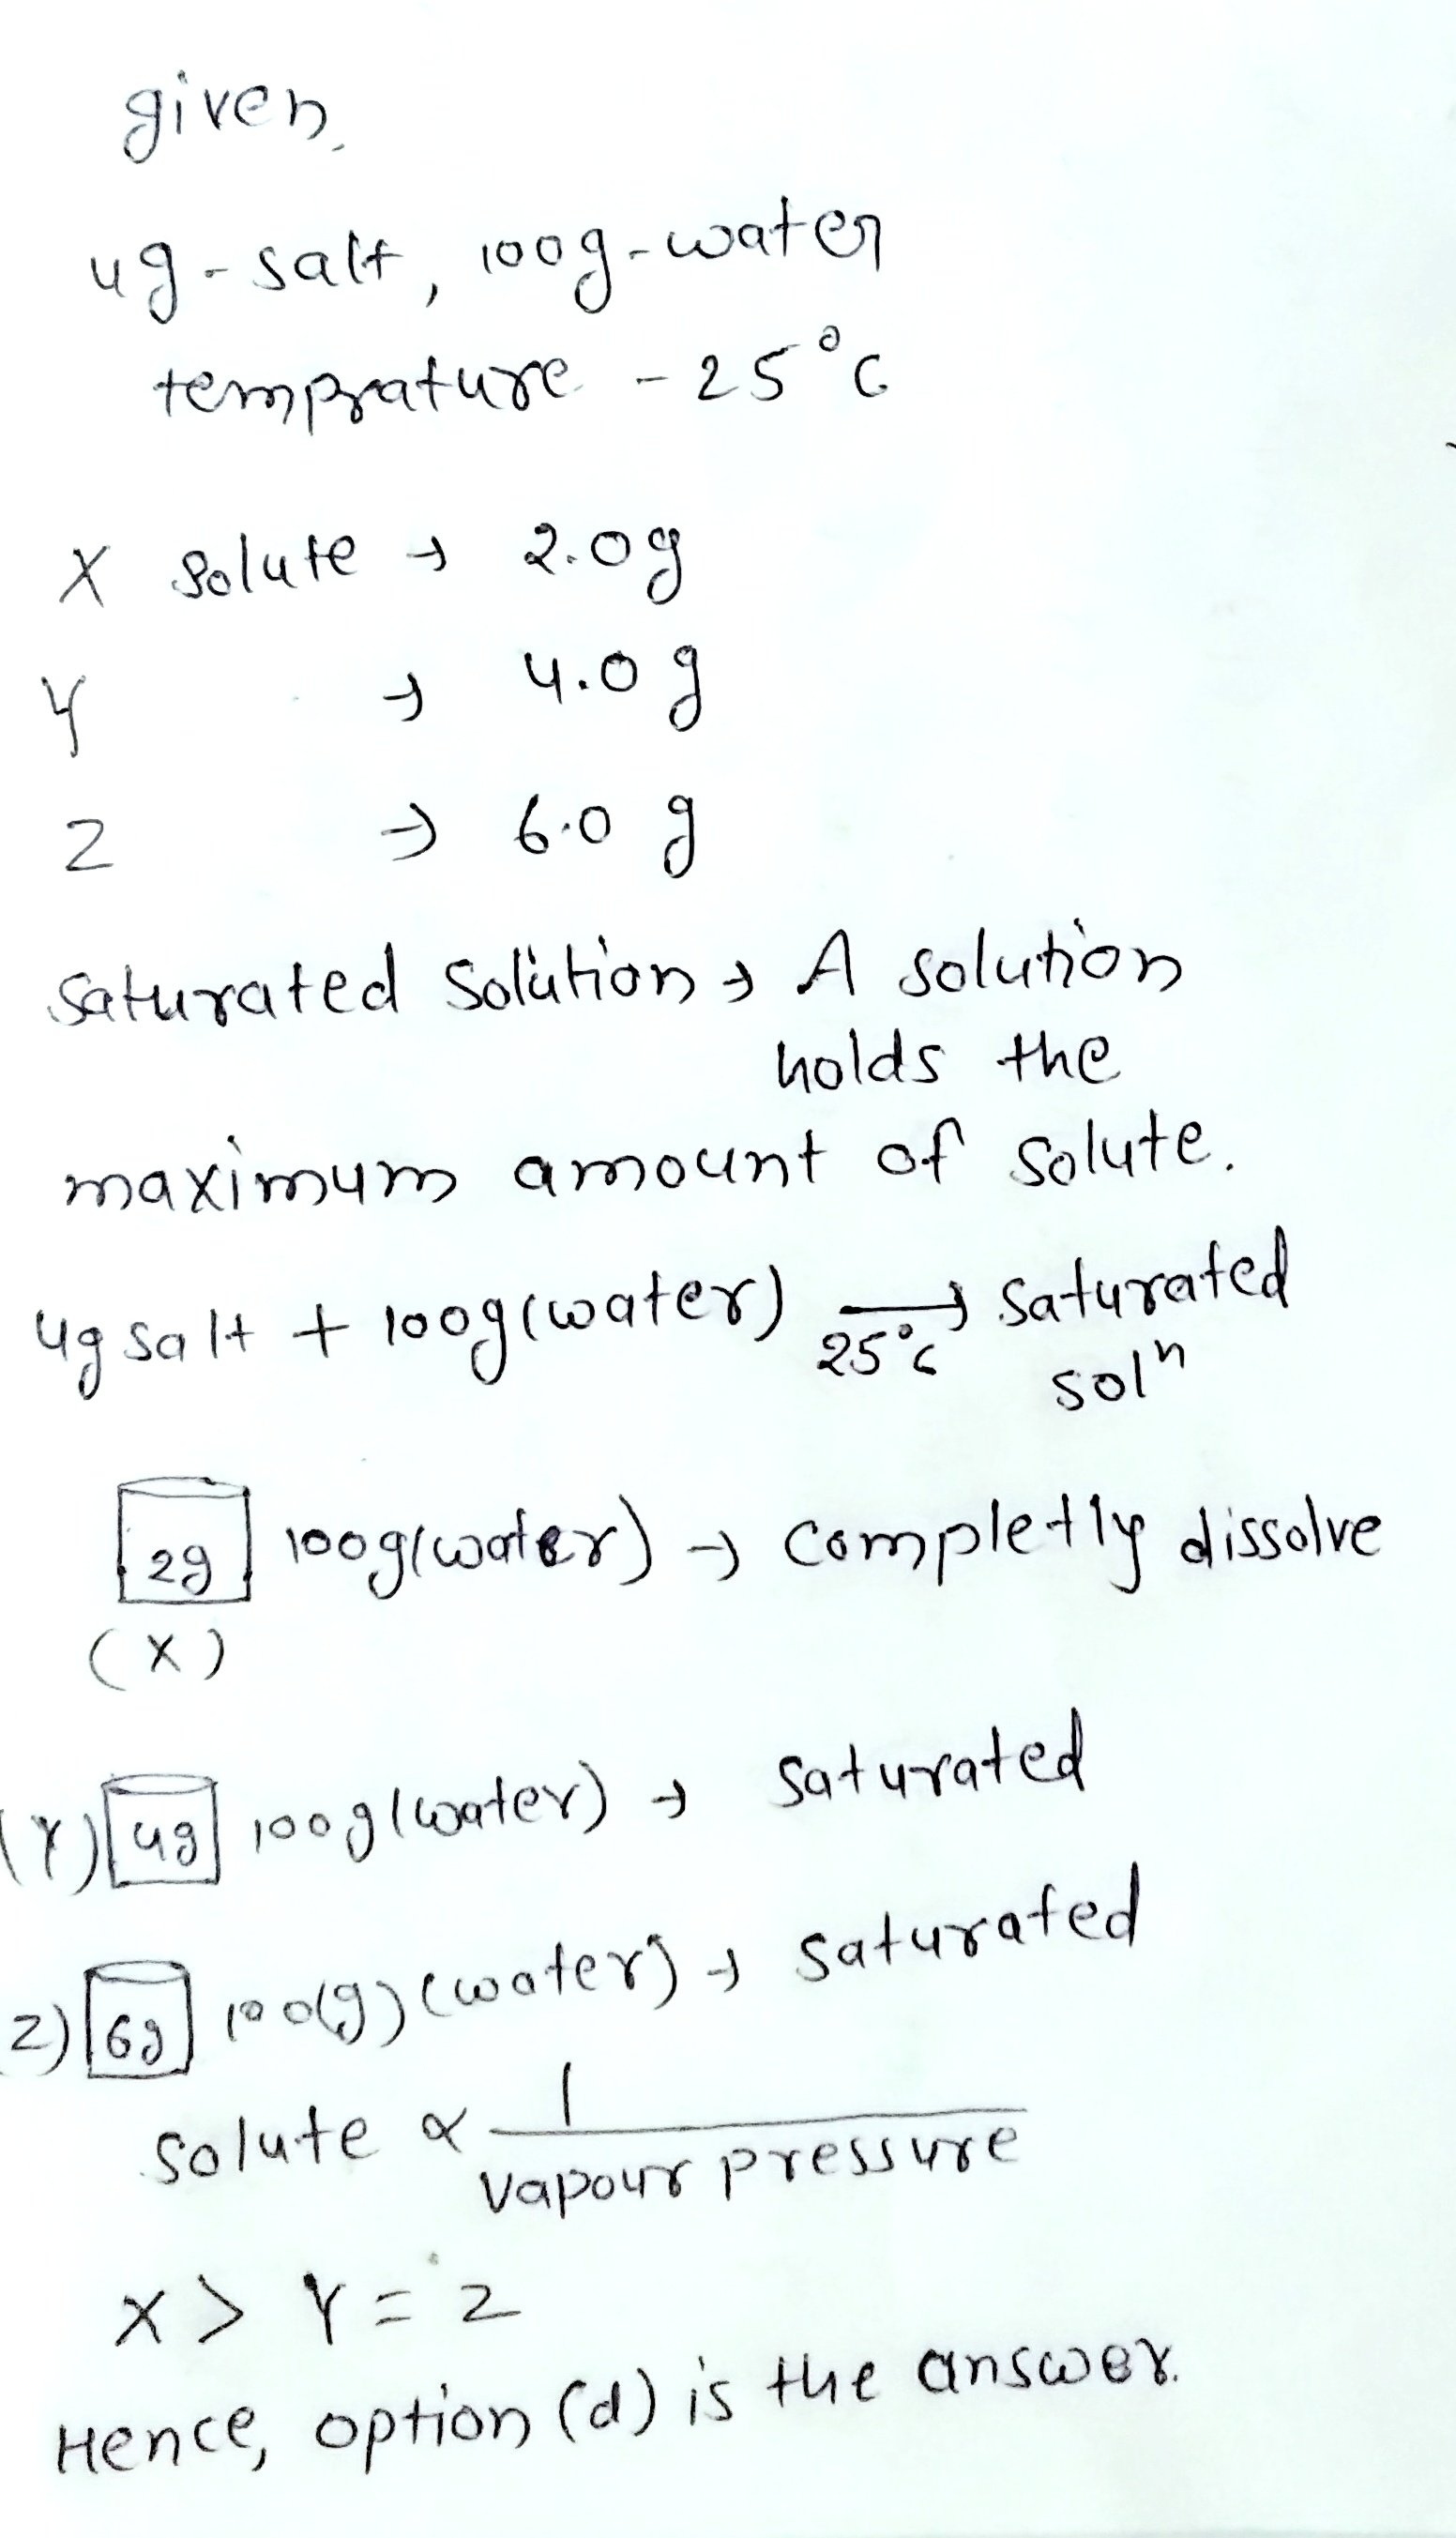 given,
4g - salt, 100g - water
temprature - 25°C
X solute → 2.0g
Y → 4.0 g
Z → 6.0 g
Saturated Solution → A solution
holds the
maximum amount of solute.
4g salt + 100g(water) → saturated
25°C solⁿ
2g 100g(water) → completly dissolve
(X)
(Y) 4g 100g(water) → saturated
Z) 6g 100(g) (water) → saturated
solute ∝ 1
vapour pressure
X > Y = Z
Hence, option (d) is the answer.